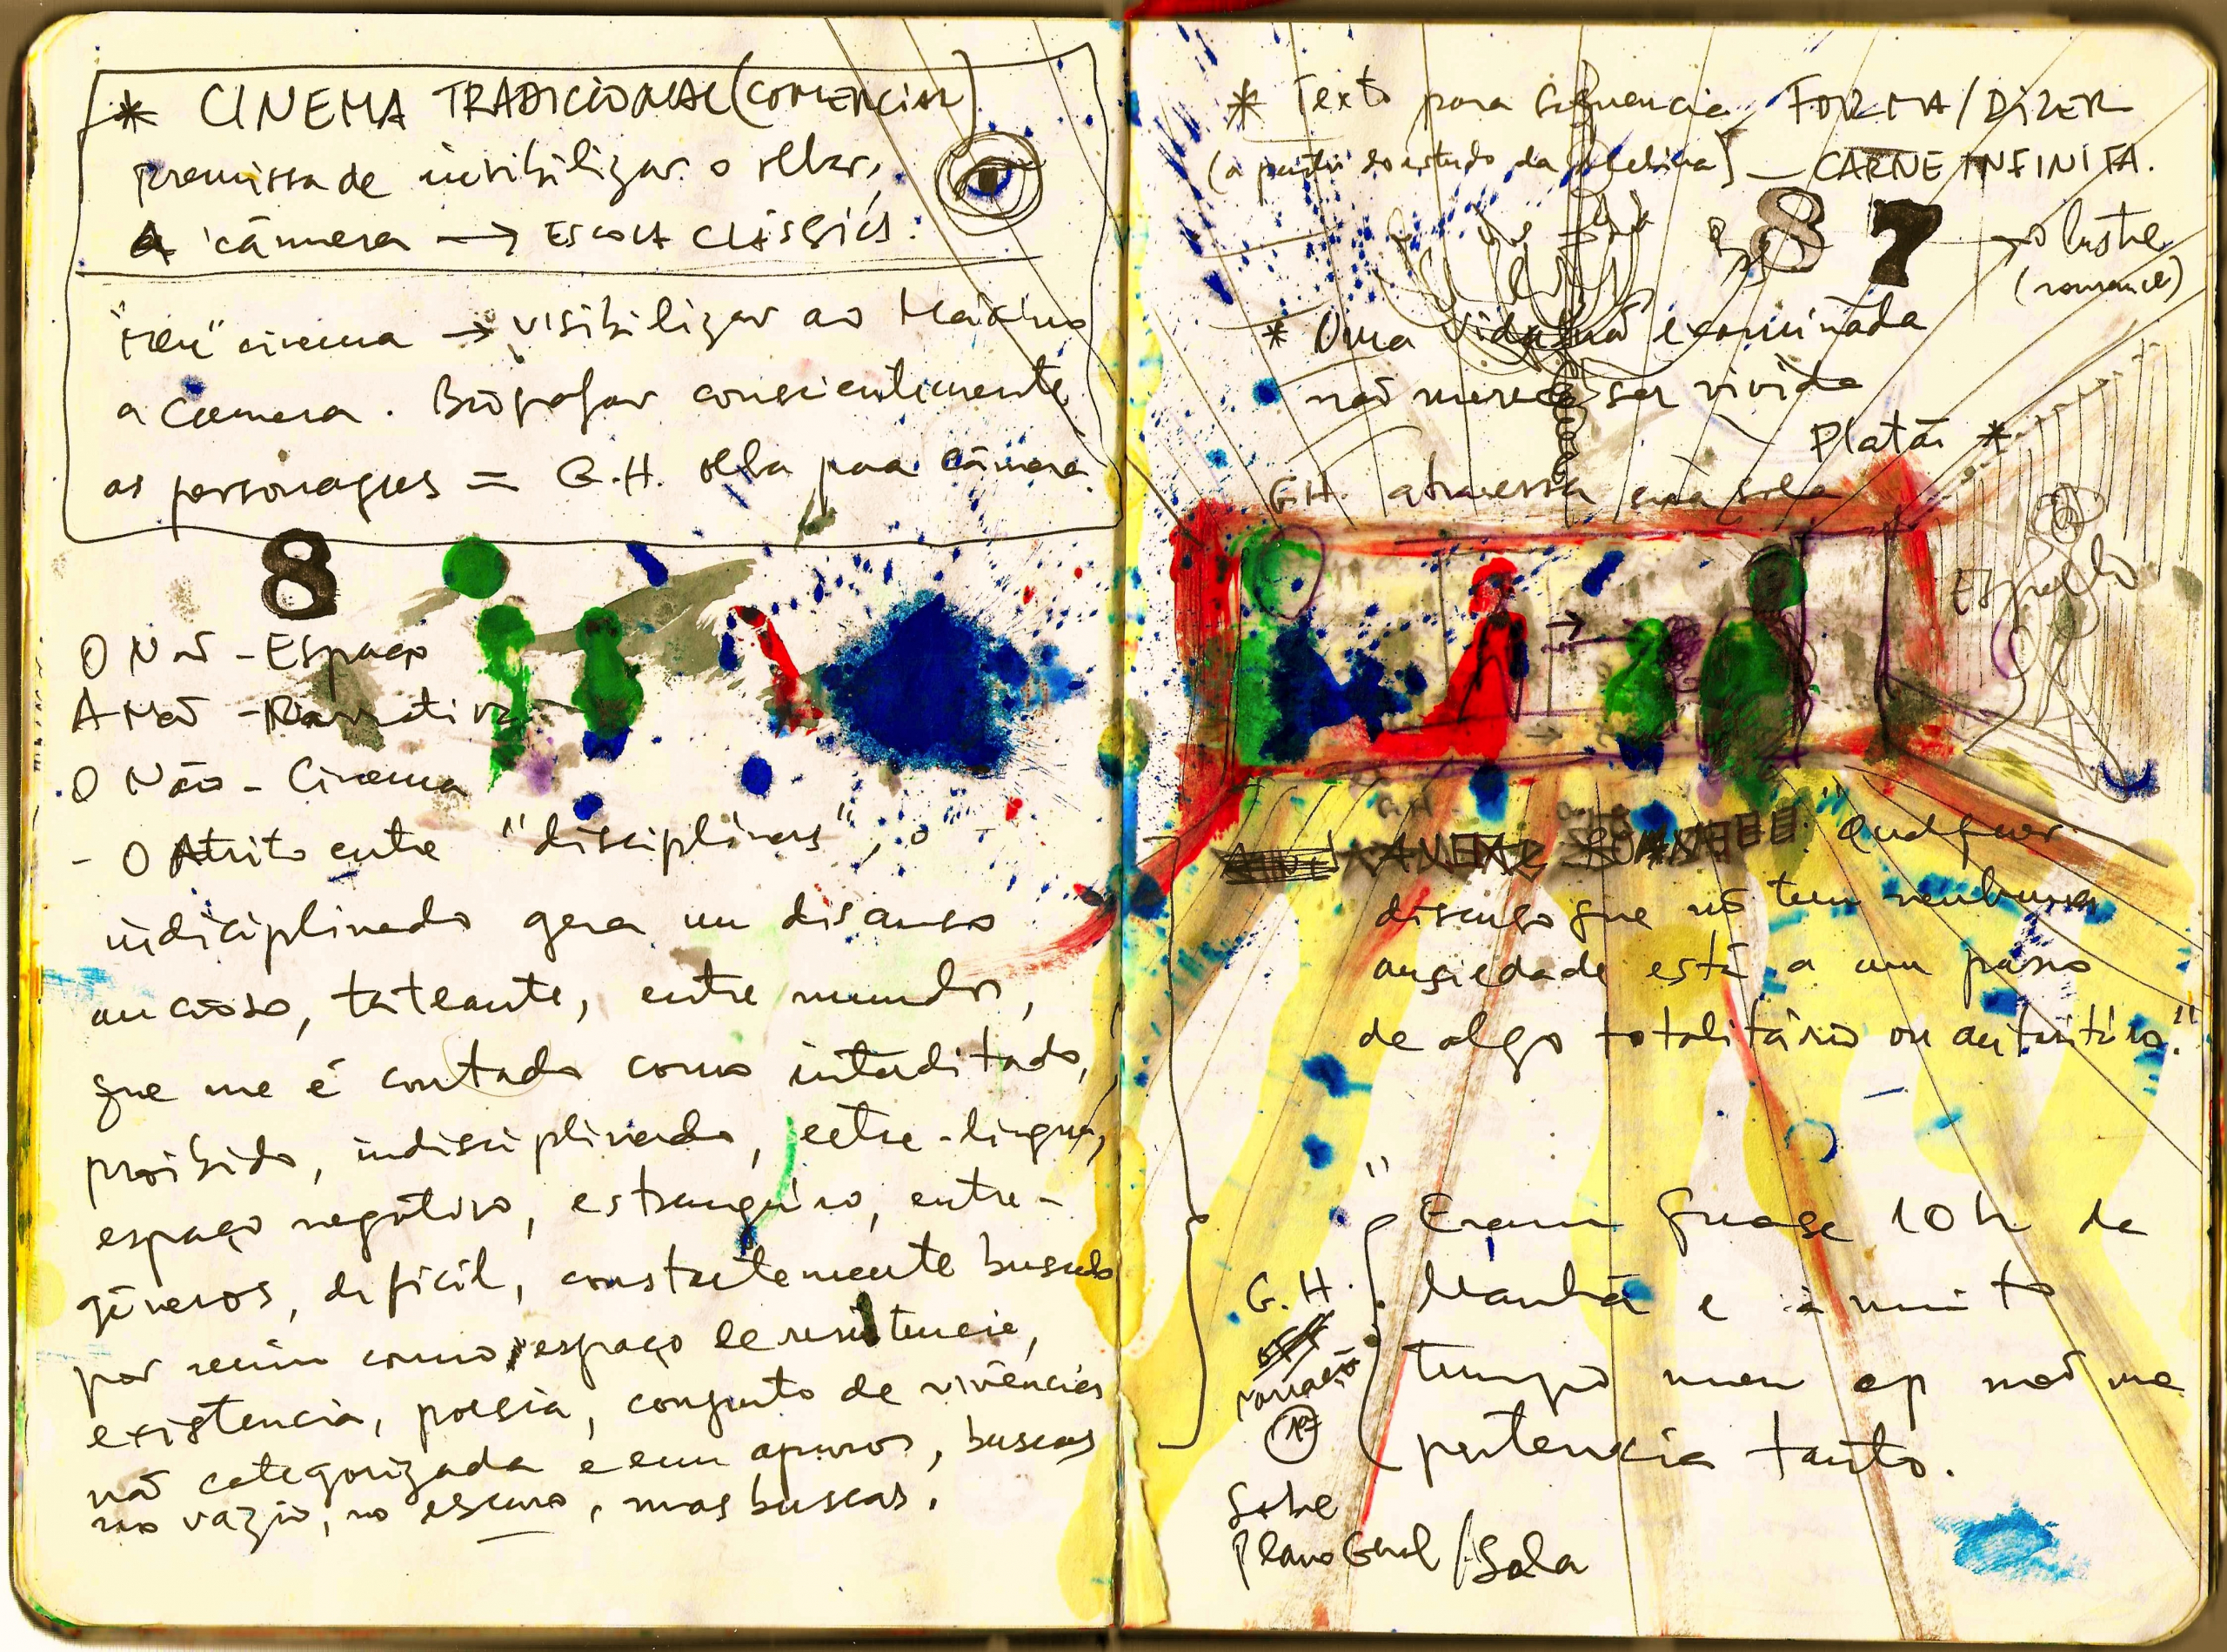 * CINEMA TRADICIONAL (COMERCIAL)
premissa de invisibilizar o olhar,
A câmera → ESCOLA CLÁSSICA.
"meu" cinema → visibilizar ao Máximo
a Camera. Biografar conscientemente
as personagens = G.H. olha para câmera.
8
O Não - Espaço
A Não - Narrativa
O Não - Cinema
- O Atrito entre "disciplinas", o
indiciplinado gera um discurso
ancioso, tateante, entre mundos,
que me é contado como interditado,
proibido, indisciplinado, entre-língua,
espaço negativo, estrangeiro, entre-
gêneros, difícil, constantemente buscado
por mim como espaço de resistencia,
existencia, poesia, conjunto de vivências
não categorizada e em apuros, buscas
no vazio, no escuro, mas buscas.
* Texto para Sequencia FORMA/DIZER
(a partir do estudo da) — CARNE INFINITA.
8 7 → o lustre
(romance)
* Uma vida não examinada
não merece ser vivida
Platão *
G.H. atravessa a sala
Espelho
"Qualquer
discurso que não tem nenhuma
ansiedade está a um passo
de algo totalitário ou autoritário."
"Eram quase 10h da
Manhã e há muito
tempo meu ap não me
pertencia tanto.
G.H.
off
narração
Sobre
Plano Geral / Sala